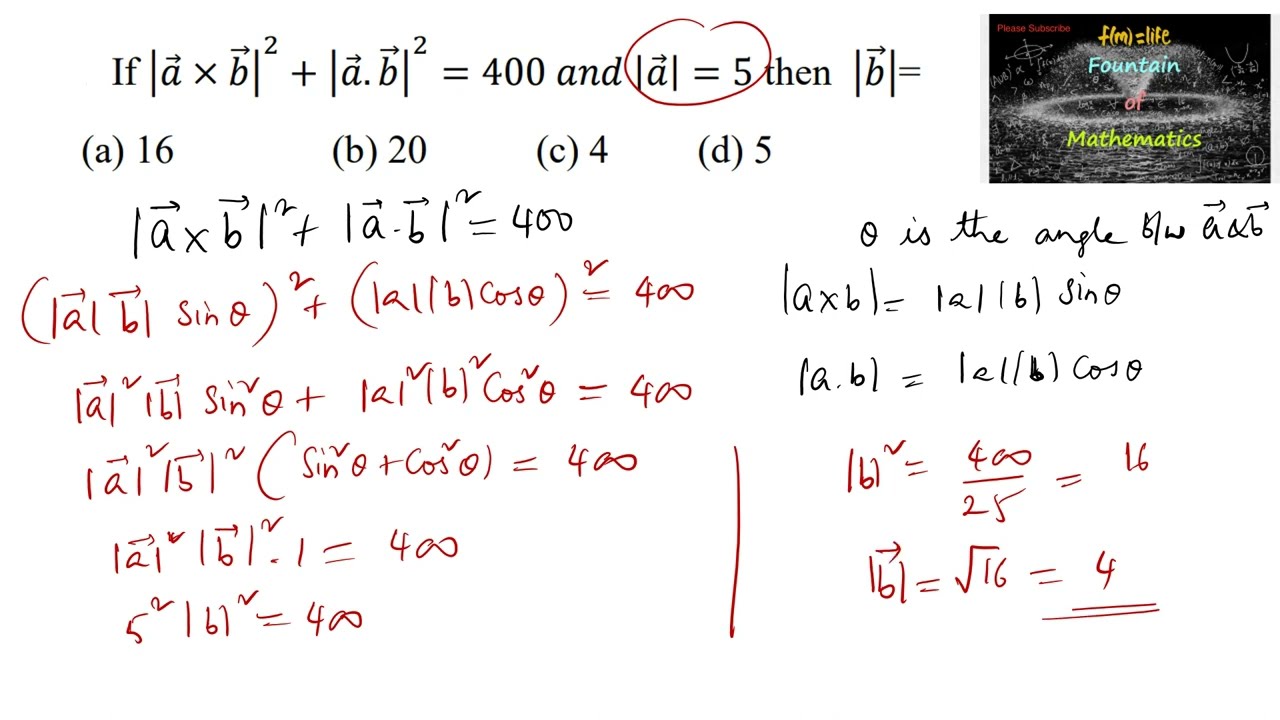 If |a⃗ × b⃗|² + |a⃗.b⃗|² = 400 and |a⃗| = 5 then |b⃗|=
(a) 16 (b) 20 (c) 4 (d) 5
Please Subscribe
f(m)=life
Fountain
of
Mathematics
|a⃗ × b⃗|² + |a⃗.b⃗|² = 400
(|a⃗||b⃗| sin θ)² + (|a||b| cos θ)² = 400
|a⃗|² |b⃗| sin²θ + |a|²|b|² cos²θ = 400
|a⃗|² |b⃗|² (sin²θ + cos²θ) = 400
|a⃗|² |b⃗|² . 1 = 400
5² |b|² = 400
θ is the angle b/w a⃗ & b⃗
|a×b| = |a||b| sin θ
|a.b| = |a||b| cos θ
|b|² = 400/25 = 16
|b⃗| = √16 = 4